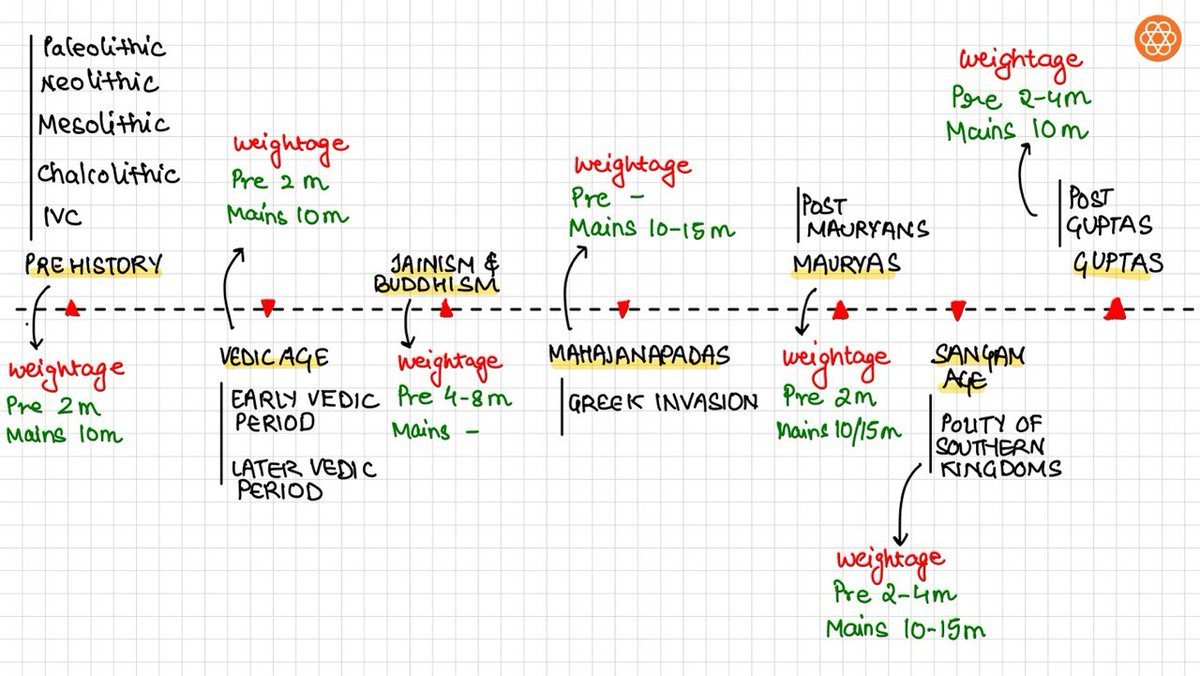 Paleolithic
Neolithic
Mesolithic
Chalcolithic
IVC
PREHISTORY
weightage
Pre 2m
Mains 10m
weightage
Pre 2 m
Mains 10m
VEDIC AGE
EARLY VEDIC
PERIOD
LATER VEDIC
PERIOD
JAINISM &
BUDDHISM
weightage
Pre 4-8m
Mains -
weightage
Pre -
Mains 10-15m
MAHAJANAPADAS
GREEK INVASION
POST
MAURYANS
MAURYAS
weightage
Pre 2m
Mains 10/15m
SANGAM
AGE
POLITY OF
SOUTHERN
KINGDOMS
weightage
Pre 2-4m
Mains 10-15m
weightage
Pre 2-4m
Mains 10m
POST
GUPTAS
GUPTAS